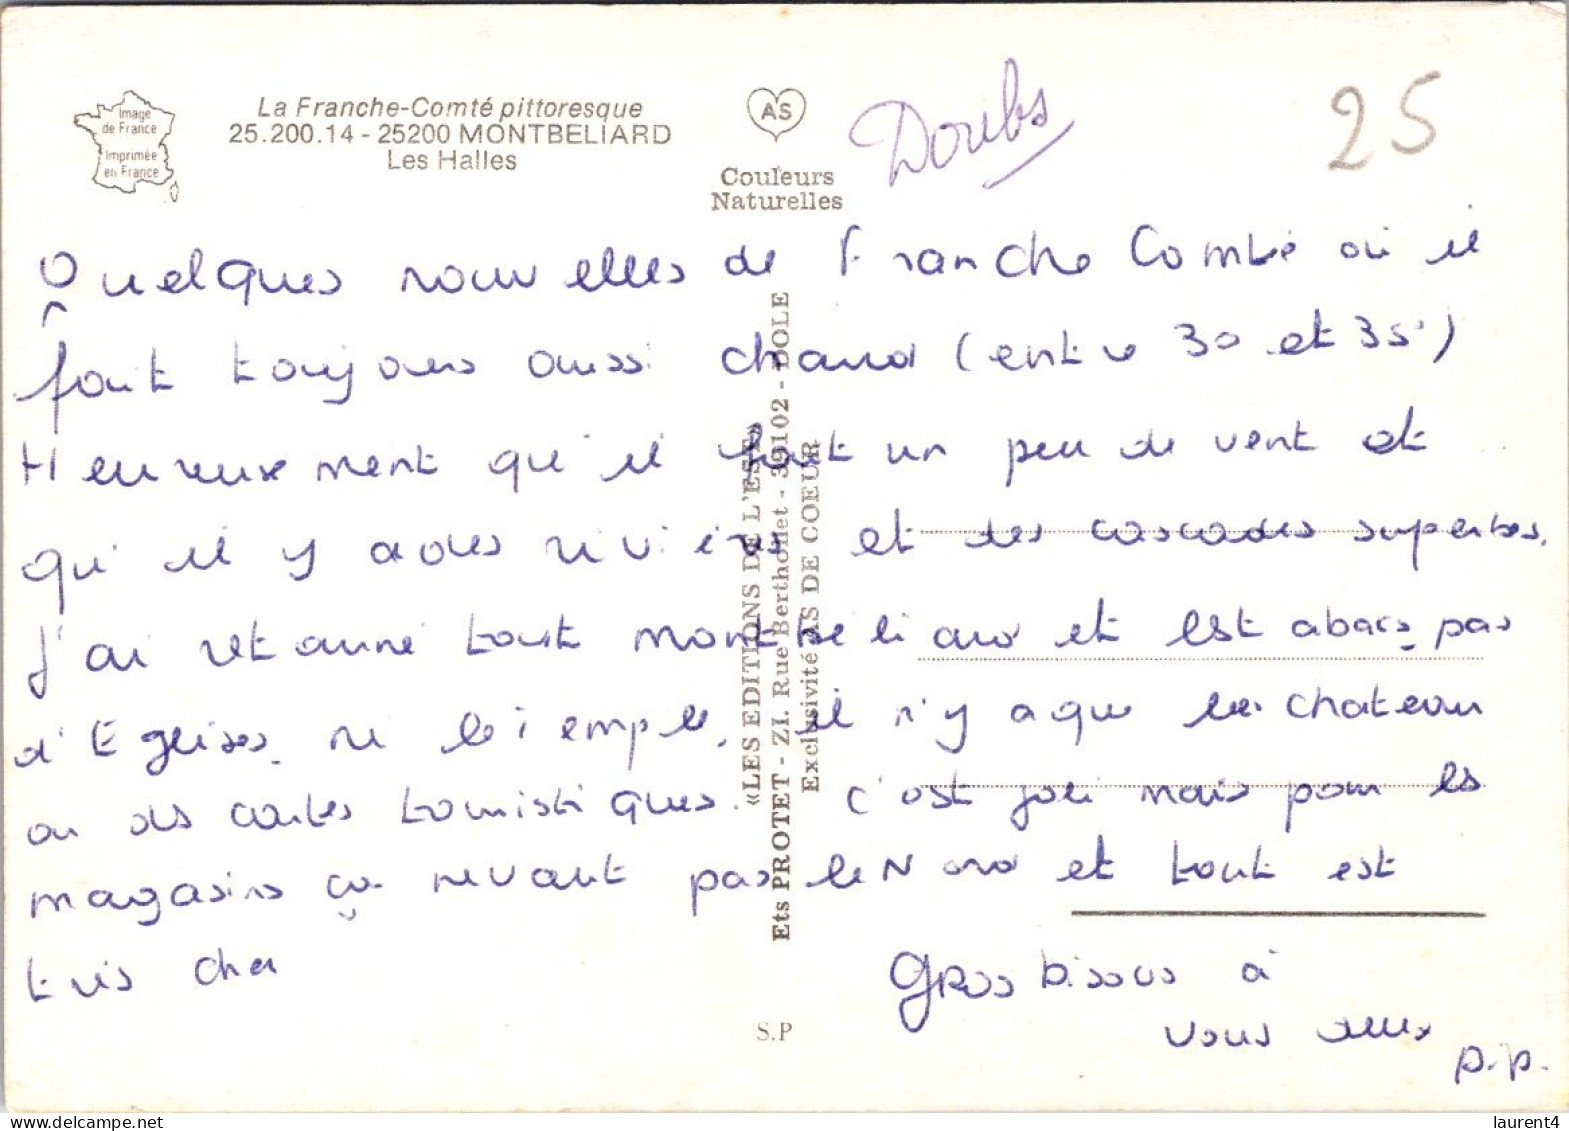 Image
de France
Imprimée
en France
La Franche-Comté pittoresque
25.200.14 - 25200 MONTBELIARD
Les Halles
AS
Couleurs
Naturelles
Doubs
25
Quelques nouvelles de Franche Comté où il
fait toujours aussi chaud (entre 30 et 35°)
Heureusement qu'il fait un peu de vent et
qu'il y a des rivières et des cascades superbes.
J'ai retourné tout Montbeliard et Est abacs pas
d'Eglises ni le Temple, il n'y a que le chateau
ou des cartes touristiques. C'est joli mais pour les
magasins ça ne vaut pas le Nord et tout est
très cher
Gros bisous à
vous deux
p.p.
«LES EDITIONS DE L'EST»
Ets PROTET - ZI. Rue Berthollet - 39102 - DOLE
Exclusivité AS DE COEUR
S.P
delcampe.net
laurent4